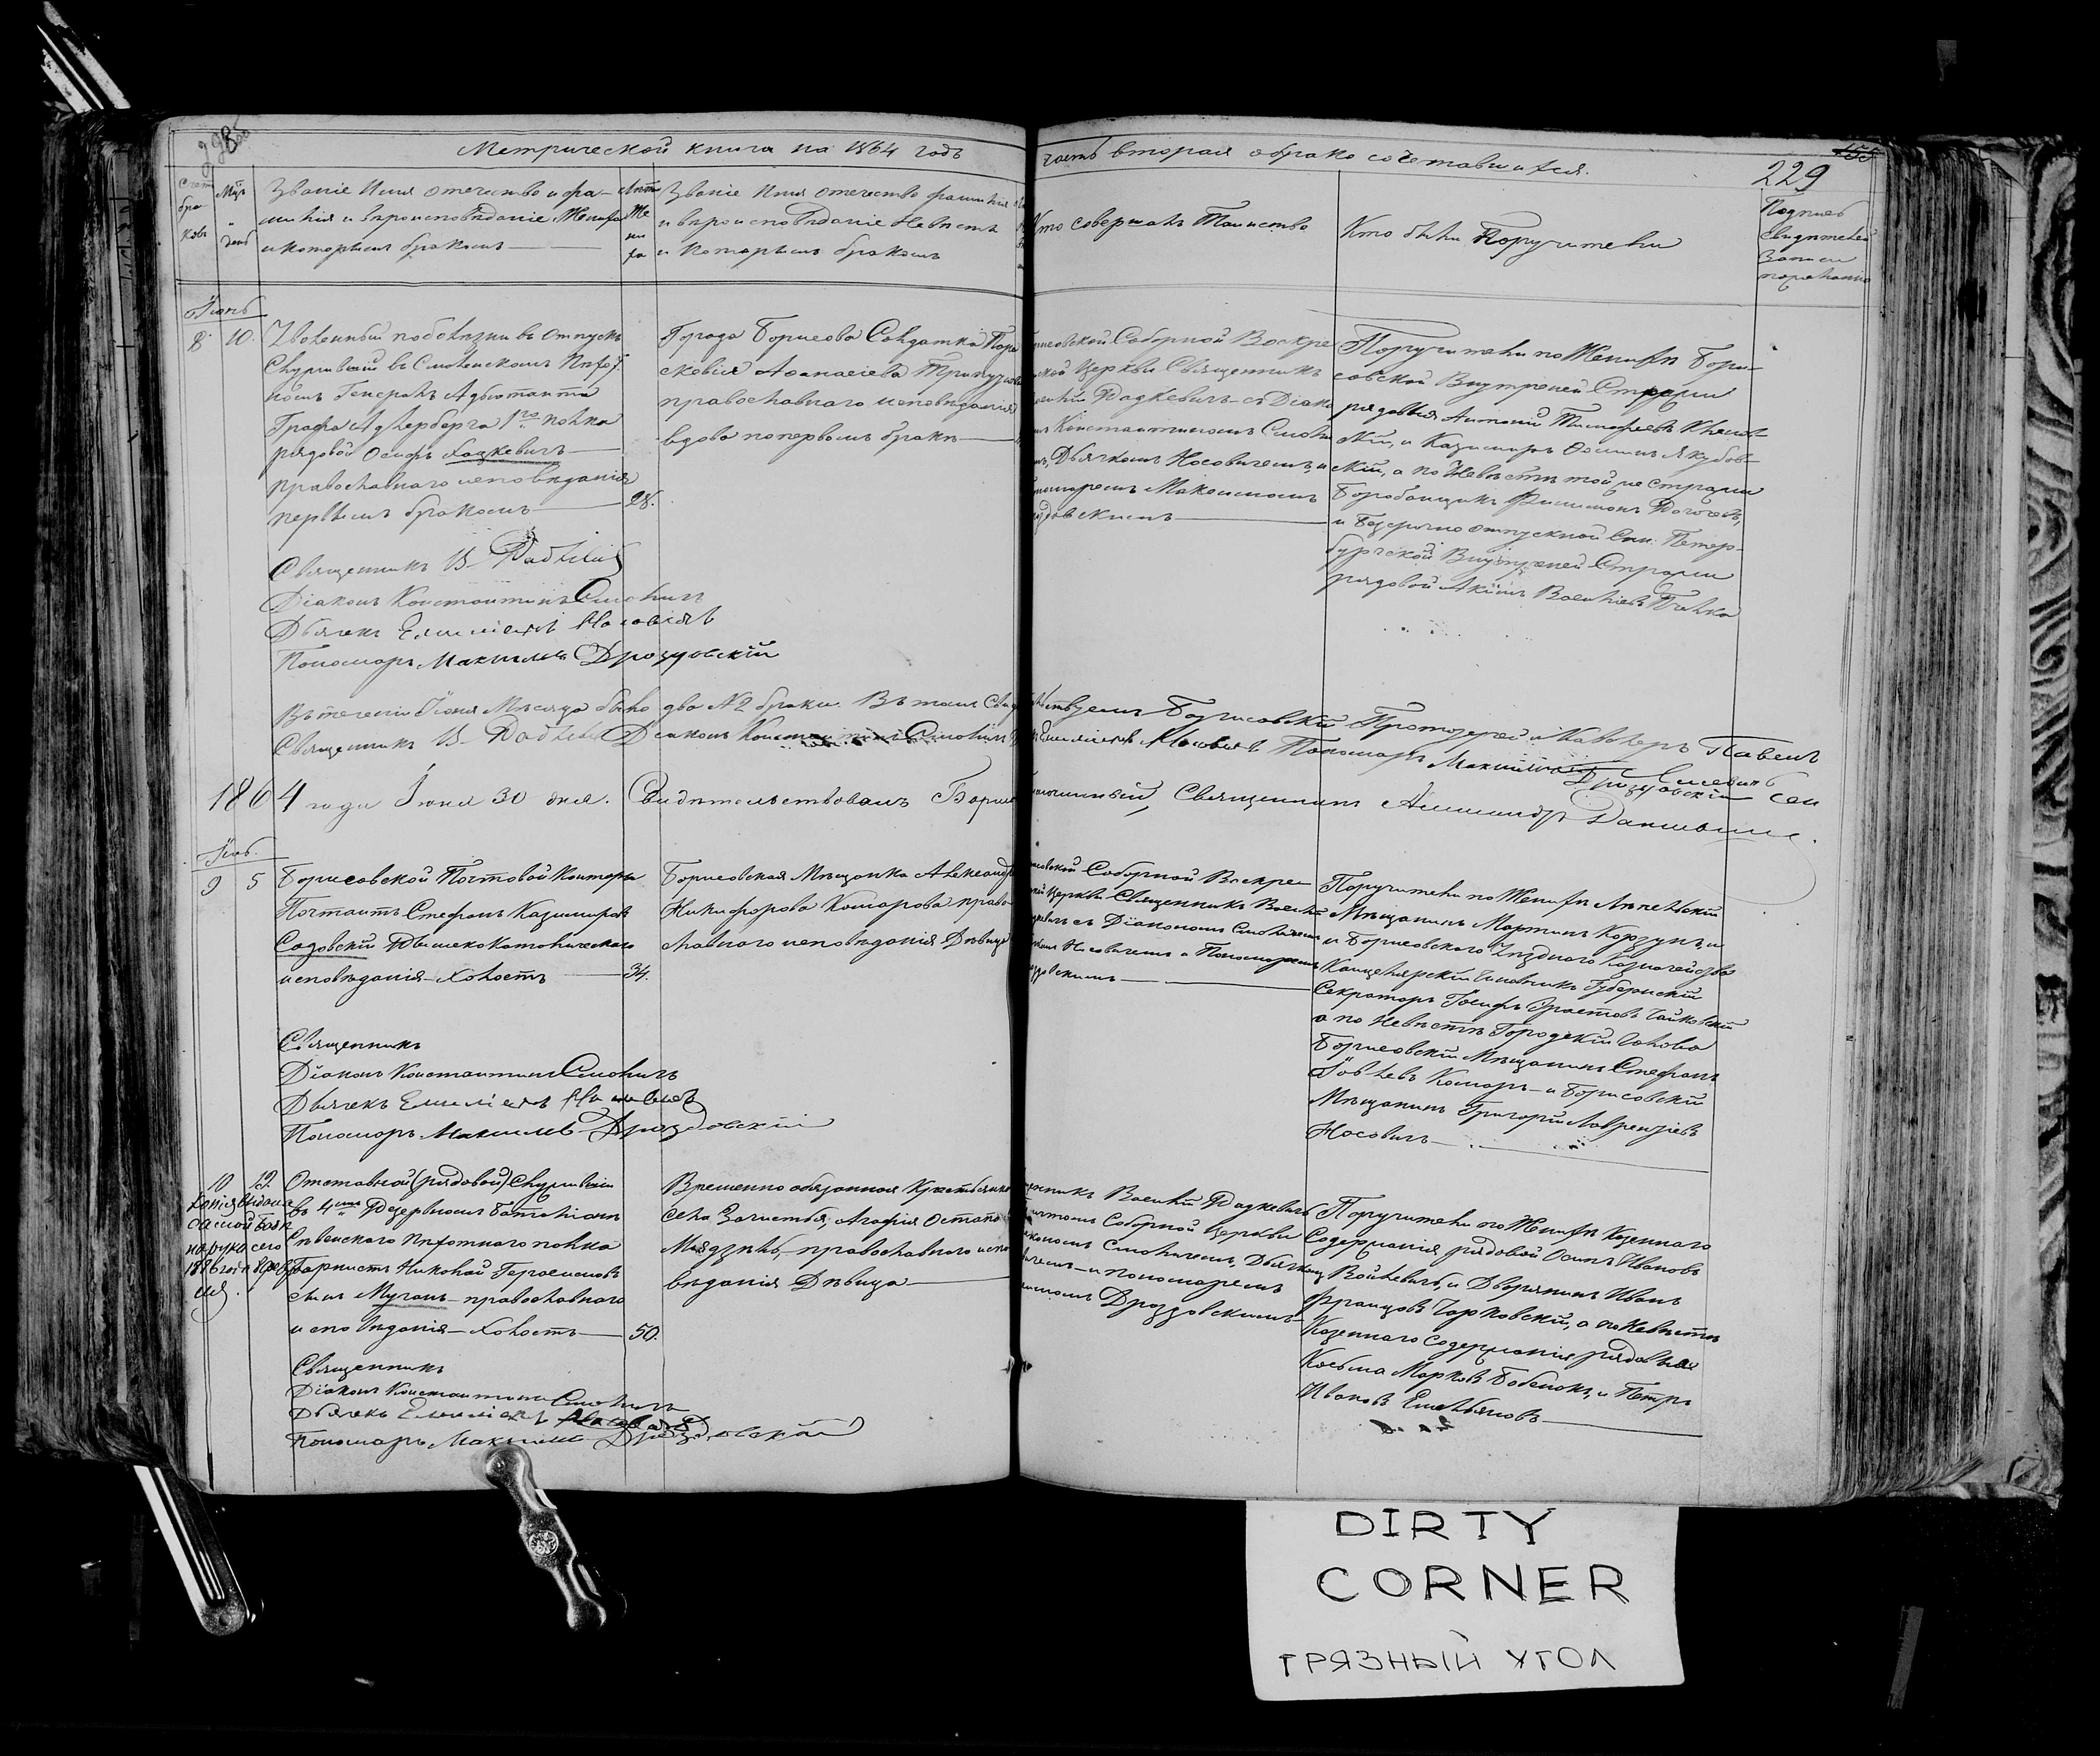 Метрической книги на 1864 годъ
часть вторая о бракосочетавшихся.
229
Мѣс. день
Званіе Имя отечество и фамилія и вѣроисповѣданіе Жениха
и которымъ бракомъ
Лѣта Жениха
Званіе Имя отечество фамилія
и вѣроисповѣданіе Невѣсты
и которымъ бракомъ
Кто совершалъ Таинство
Кто были Поручители
Подпись
свидѣтелей
записи
по желанію
Іюнь
8 10.
Уволенный по болѣзни въ отпускъ
Служивый въ Смоленскомъ Пѣхот
номъ Генералъ Адъютанта
Графа Адлерберга 1го полка
рядовой Осипъ Хацкевичъ
православнаго исповѣданія
первымъ бракомъ 28.
Города Борисова Солдатка Пора
сковія Аѳанасіева
православнаго исповѣданія
вдова по первомъ бракѣ
Соборной Воскре
Церкви Священникъ
Радкевичъ съ Діако
Константиномъ Смоли
Дьячкомъ Носовичемъ, и
Максимомъ
Поручители по Женихѣ Бори
совской Внутреней Стражи
рядовыя Антоній Тимофеевъ
и Казимиръ Осиповъ Якубов
скій, а по Невѣстѣ той же Стражи
Боробанщикъ Филимонъ
и Безсрочно отпускной Сан. Петер
бургской Внутреней Стражи
рядовой Акимъ Васильевъ
Священникъ В. Радкевичъ
Діаконъ Константинъ Смоличъ
Дьячекъ Емиліанъ Насовичъ
Пономарь Максимъ Дроздовскій
Въ теченіи Іюня Мѣсяца было два № 2 браки. Въ томъ Свидѣтельствуемъ Борисовскій Протоіерей и Кавалеръ Павелъ
Священникъ В. Радкевичъ Діаконъ Константинъ Смоличъ Емиліанъ Насовичъ Пономарь Максимъ Дроздовскій
1864 года Іюня 30 дня. Свидѣтельствовалъ Борис Благочинный, Священникъ Александръ
Іюль.
9 5
Борисовской Почтовой Конторы
Почталіонъ Стефанъ Казимировъ
Садовскій Римскокатолическаго
исповѣданія холостъ 34.
Борисовская Мѣщанка Александра
Никифорова Комарова право
славнаго исповѣданія Дѣвица
Соборной Воскресен
Церкви Священникъ Василій
съ Діакономъ Смоличемъ
Носовичемъ и Пономаремъ
Поручители по Женихѣ Лепельскій
Мѣщанинъ Мартинъ Корзунъ, и
Борисовского Уѣзднаго Казначейства
Канцелярскій Чиновникъ Губернскій
Секретарь Іосифъ Чайковскій
а по Невѣстѣ Городскій Голова
Борисовскій Мѣщанинъ Стефанъ
Іовлевъ Комаръ и Борисовскій
Мѣщанинъ Григорій Лаврентіевъ
Носовичъ
Священникъ
Діаконъ Константинъ Смоличъ
Дьячекъ Емиліанъ Насовичъ
Пономарь Максимъ Дроздовскій
10 12.
Копія выдана
на руки сего
1886 года
Отставной (рядовой) Служивый
въ 4омъ Резервномъ Баталіонѣ
Пѣхотнаго полка
Гарнистъ Николай Герасимовъ
сынъ Муганъ православнаго
исповѣданія холостъ 50.
Временно обязанная Крестьянка
села Зачистья, Агафія Остапо
Мядзель, православнаго испо
вѣданія Дѣвица
Василій Радкевичъ
Соборной Церкви
Смоличемъ, Дьячком
и пономаремъ
Дроздовскимъ
Поручители по Женихѣ Казеннаго
Содержанія рядовой Осипъ Ивановъ
Войневичъ, и Дворянинъ Иванъ
Францовъ Чарковскій, а по Невѣстѣ
Казеннаго содержанія рядовыя
Косьма Марковъ Бобенокъ, и Петръ
Ивановъ Емельяновъ
Священникъ
Діаконъ Константинъ Смоличъ
Дьячекъ Емиліанъ Насовичъ
Пономарь Максимъ Дроздовскій
DIRTY
CORNER
ГРЯЗНЫЙ УГОЛ